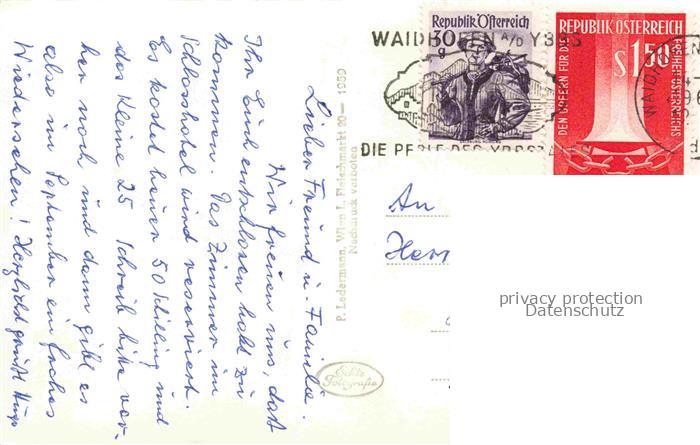 Lieber Freund u. Familie.
Wir freuen uns, dass
Ihr Euch entschlossen habt zu
kommen. Das Zimmer im
Schlosshotel wird reserviert.
Es kostet heuer 50 Schilling und
das Kleine 25 Schreib bitte vor-
her noch, und dann gibt es
also im September ein frohes
Wiedersehen! Herzlichst grüßt Hugo
P. Ledermann, Wien I., Fleischmarkt 20 — 1959
Nachdruck verboten
Echte
Fotografie
WAIDHOFEN A/D YBBS
DIE PERLE DES YBBSTALES
REPUBLIK ÖSTERREICH
30 g
REPUBLIK ÖSTERREICH
S 1.50
DEN OPFERN FÜR DIE
FREIHEIT ÖSTERREICHS
An
Herr
privacy protection
Datenschutz